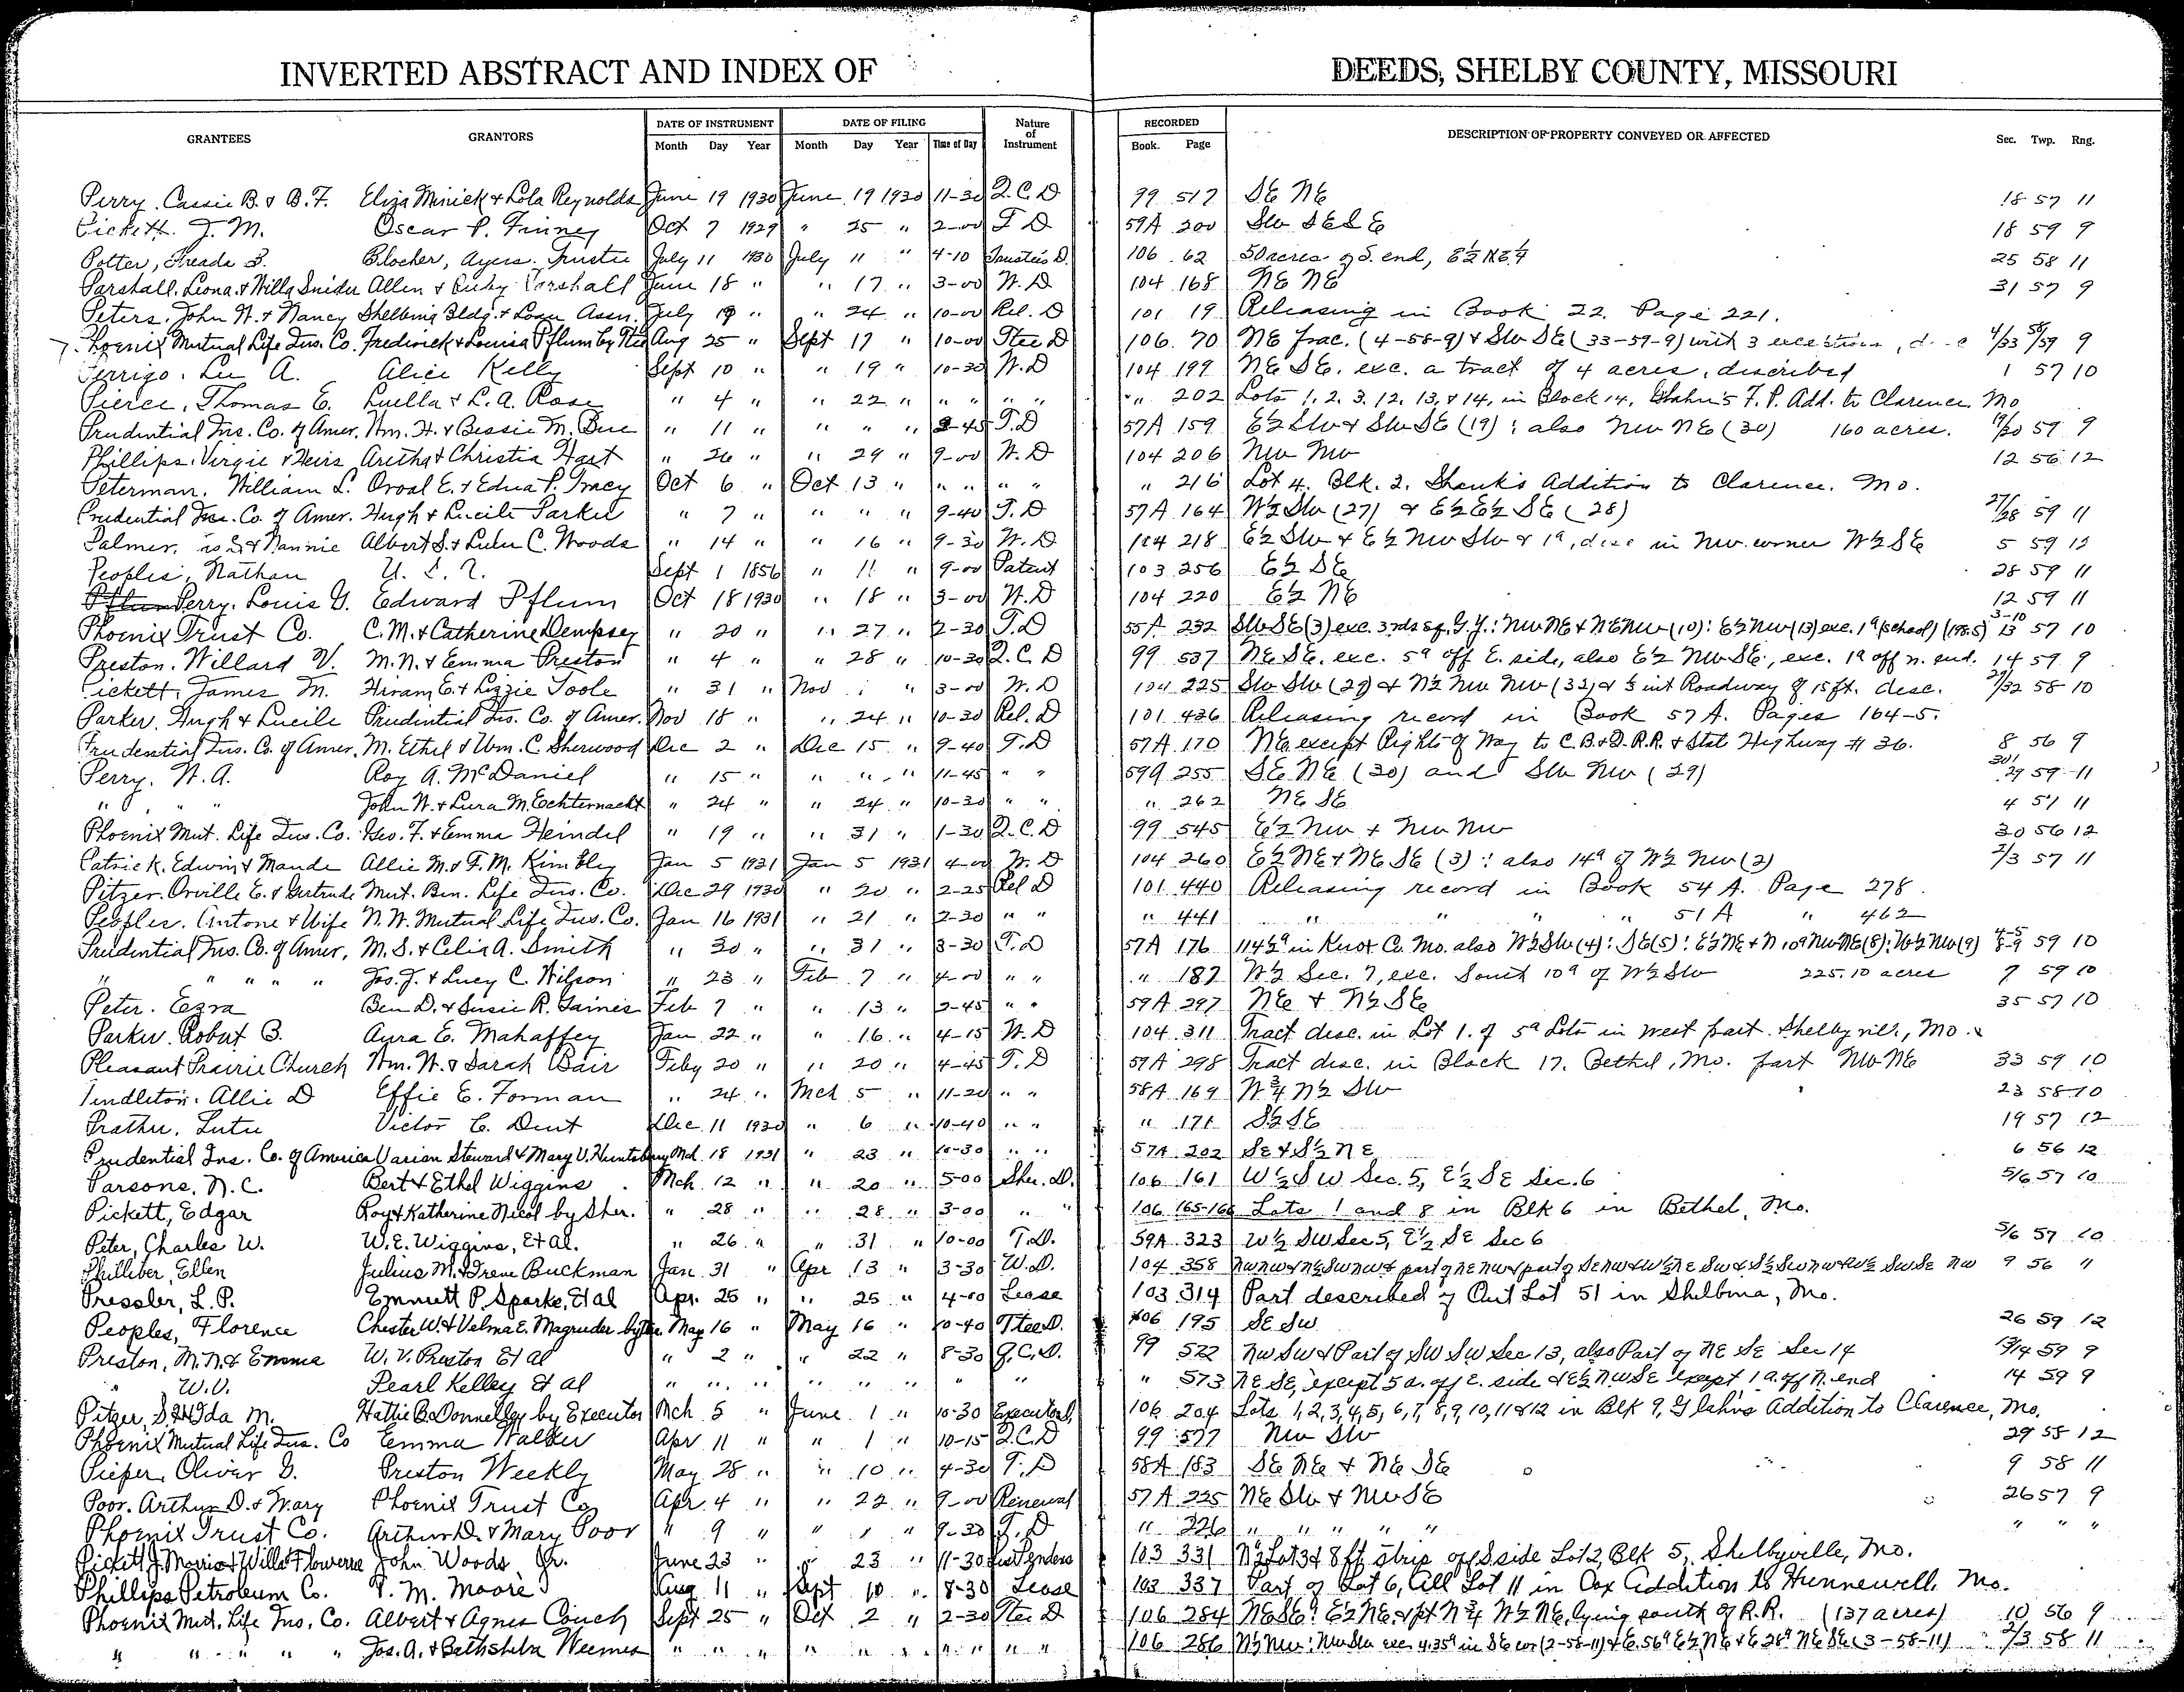 INVERTED ABSTRACT AND INDEX OF DEEDS, SHELBY COUNTY, MISSOURI
GRANTEES GRANTORS DATE OF INSTRUMENT DATE OF FILING Nature of Instrument RECORDED DESCRIPTION OF PROPERTY CONVEYED OR AFFECTED Sec. Twp. Rng.
Month Day Year Month Day Year Time of Day Book. Page
Perry. Cassie B. & B. F. Eliza Minick & Lola Reynolds June 19 1930 June 19 1930 11-30 Q.C.D 99 517 SE NE 18 57 11
Pickett. J. M. Oscar P. Finney Oct 7 1929 " 25 " 2-00 T D 59A 200 SW SE SE 18 59 9
Potter, Freada B. Blocher, Ayers. Trustee July 11 1930 July 11 " 4-10 Trustee's D. 106 62 50 acres of S. end, E½ NE¼ 25 58 11
Parshall. Leona & Willa Snider Allen & Parshall June 18 " " 17 " 3-00 W.D 104 168 NE NE 31 57 9
Peters. John W. & Nancy Shelbina Bldg. & Loan Assn. July 19 " " 24 " 10-00 Rel. D 101 19 Releasing in Book 22. Page 221.
Phoenix Mutual Life Ins. Co. Fredrick & Louisa Pflum by Tree Aug 25 " Sept 17 " 10-00 Stee D 106 70 NE frac. (4-58-9) & SW SE (33-59-9) with 3 exceptions, 4/33 58/59 9
Perrigo. Lu A. Alice Kelly Sept 10 " " 19 " 10-30 W.D 104 199 NE SE. exc. a tract of 4 acres, described 1 57 10
Pierce, Thomas E. Luella & L. A. Rose " 4 " " 22 " " " " " " 202 Lots 1, 2, 3, 12, 13, & 14, in Block 14, Glahn's F. P. Add. to Clarence. Mo
Prudential Ins. Co. of Amer. Wm. H. & Bessie M. Bue " 11 " " " " 9-45 T.D 57A 159 E½ SW & SW SE (19); also NW NE (30) 160 acres. 19/30 59 9
Phillips. Virgie & Heirs Aretha & Christia Hart " 26 " " 29 " 9-00 W.D 104 206 NW NW 12 56 12
Peterman. William L. Oroal E. & Edna P. Tracy Oct 6 " Oct 13 " " " " " " 216 Lot 4. Blk. 2. Shank's Addition to Clarence. Mo.
Prudential Ins. Co. of Amer. Hugh & Lucile Parker " 7 " " " " 9-40 T.D 57A 164 W½ SW (27) & E½ E½ SE (28) 27/28 59 11
Palmer. & Nannie Albert S. & Lulu C. Woods " 14 " " 16 " 9-30 W.D 104 218 E½ SW & E½ NW SW & 1ª, desc in NW. corner W½ SE 5 59 12
Peoples, Nathan U. S. A. Sept 1 1856 " 11 " 9-00 Patent 103 256 E½ SE 28 59 11
Perry. Louis G. Edward Pflum Oct 18 1930 " 18 " 3-00 W.D 104 220 E½ NE 12 59 11
Phoenix Trust Co. C. M. & Catherine Dempsey " 20 " " 27 " 2-30 T.D 55A 232 SW SE (3) exc. 3 rds sq. G.Y.: NW NE & NE NW (10): E½ NW (13) exc. 1ª (school) (198.5) 3-10 13 57 10
Preston. Willard V. M. N. & Emma Preston " 4 " " 28 " 10-30 Q.C.D 99 537 NE SE. exc. 5ª off E. side, also E½ NW SE, exc. 1ª off n. end. 14 59 9
Pickett, James M. Hiram E. & Lizzie Toole " 31 " Nov 1 " 3-00 W.D 104 225 SW SW (29) & N½ NW NW (32) & ½ int Roadway of 15 ft. desc. 29/32 58 10
Parker. Hugh & Lucile Prudential Ins. Co. of Amer. Nov 18 " " 24 " 10-30 Rel. D 101 436 Releasing record in Book 57 A. Pages 164-5.
Prudential Ins. Co. of Amer. M. Ethel & Wm. C. Sherwood Dec 2 " Dec 15 " 9-40 T.D 57A 170 NE except Rights of Way to C.B.&Q.R.R. & State Highway # 36. 8 56 9
Perry. W. A. Roy A. McDaniel " 15 " " " " 11-45 " " 59A 255 SE NE (30) and SW NW (29) 30/29 59 11
" " " John W. & Lura M. Echternacht " 24 " " 24 " 10-30 " " " 262 NE SE 4 57 11
Phoenix Mut. Life Ins. Co. Geo. F. & Emma Heindel " 19 " " 31 " 1-30 Q.C.D 99 545 E½ NW & NW NW 30 56 12
Patrick. Edwin & Maude Allie M. & F. M. Kimbley Jan 5 1931 Jan 5 1931 4-00 W.D 104 260 E½ NE & NE SE (3): also 14ª of W½ NW (2) 2/3 57 11
Pitzer. Orville E. & Gertrude Mut. Ben. Life Ins. Co. Dec 29 1930 " 20 " 2-25 Rel D 101 440 Releasing record in Book 54 A. Page 278.
Peoples. Antone & Wife N. W. Mutual Life Ins. Co. Jan 16 1931 " 21 " 2-30 " " " 441 " " " " 51 A " 462
Prudential Ins. Co. of Amer. M. S. & Celia A. Smith " 30 " " 31 " 3-30 T.D 57A 176 114½ª in Knox Co. Mo. also W½ SW (4): SE (5): E½ NE & N 10ª NW NE (8): W½ NW (9) 4-5 8-9 59 10
" " " " " Jos. J. & Lucy C. Wilson " 23 " Feb 7 " 4-00 " " " 187 W½ Sec. 7, exc. South 10ª of W½ SW 225.10 acres 7 59 10
Peter. Ezra Ben D. & Susie R. Gaines Feb 7 " " 13 " 2-45 " " 59A 297 NE & N½ SE 35 57 10
Parker. Robert B. Ayra E. Mahaffey Jan 22 " " 16 " 4-15 W.D 104 311 Tract desc. in Lot 1. of 5ª Lots in west part. Shelbyville, Mo.
Pleasant Prairie Church Wm. W. & Sarah Bair Feby 20 " " 20 " 4-45 T.D 59A 298 Tract desc. in Block 17. Bethel, Mo. part NW NE 33 59 10
Pendleton. Allie D Effie E. Forman " 24 " Mch 5 " 11-20 " " 58A 169 W¾ N½ SW 23 58 10
Prather. Lutie Victor C. Dent Dec 11 1930 " 6 " 10-40 " " " 171 S½ SE 19 57 12
Prudential Ins. Co. of America Varian Steward & Mary V. Huntsberry Mch 18 1931 " 23 " 10-30 " " 57A 202 SE & S½ NE 6 56 12
Parsons, N. C. Bert & Ethel Wiggins Mch 12 " " 20 " 5-00 Sher. D. 106 161 W½ SW Sec. 5, E½ SE Sec. 6 5/6 57 10
Pickett, Edgar Roy & Katherine Nicol by Sher. " 28 " " 28 " 3-00 " " 106 165-166 Lots 1 and 8 in Blk 6 in Bethel, Mo.
Peter, Charles W. W. E. Wiggins, Et Al. " 26 " " 31 " 10-00 T.D. 59A 323 W½ SW Sec 5, E½ SE Sec 6 5/6 57 10
Philliber, Ellen Julius M. & Irene Buckman Jan 31 " Apr 13 " 3-30 W.D. 104 358 NW NW & N½ SW NW & part of NE NW & part of SE NW & W½ NE SW & S½ SW NW & W½ SW SE NW 9 56 "
Pressler, L. P. Emmett P. Sparks, Et al Apr. 25 " " 25 " 4-00 Lease 103 314 Part described of Out Lot 51 in Shelbina, Mo.
Peoples, Florence Chester W. & Velma E. Magruder by Tee. May 16 " May 16 " 10-40 Ttee D. 106 195 SE SW 26 59 12
Preston, M. N. & Emma W. V. Preston Et al " 2 " " 22 " 8-30 Q.C.D. 99 572 NW SW & Part of SW SW Sec 13, also Part of NE SE Sec 14 13/14 59 9
" W. V. Pearl Kelley Et al " " " " " " " " " 573 NE SE, except 5 a. off E. side & E½ NW SE except 1 a. off N. end 14 59 9
Pitzer, S. & Ida M. Hattie B. Donnelley by Executor Mch 5 " June 1 " 10-30 Executors, 106 204 Lots 1, 2, 3, 4, 5, 6, 7, 8, 9, 10, 11 & 12 in Blk 9, Glahn's Addition to Clarence, Mo.
Phoenix Mutual Life Ins. Co Emma Walker Apr 11 " " 1 " 10-15 Q.C.D 99 577 NW SW 29 58 12
Pieper, Oliver G. Preston Weekly May 28 " " 10 " 4-30 T.D 58A 183 SE NE & NE SE 9 58 11
Poor. Arthur D. & Mary Phoenix Trust Co Apr. 4 " " 22 " 9-00 Renewal 57A 225 NE SW & NW SE 26 57 9
Phoenix Trust Co. Arthur D. & Mary Poor " 9 " " 1 " 9-30 T.D " 226 " " " " " " " "
Pickett J. Morris & Willa Flowerree John Woods Jr. June 23 " " 23 " 11-30 Lis Pendens 103 331 N½ Lot 3 & 8 ft strip off S. side Lot 2, Blk 5, Shelbyville, Mo.
Phillips Petroleum Co. T. M. Moore Aug 11 " Sept 10 " 8-30 Lease 103 337 Part of Lot 6, All Lot 11 in Cox Addition to Hunnewell. Mo.
Phoenix Mut. Life Ins. Co. Albert & Agnes Couch Sept 25 " Oct 2 " 2-30 Stee D 106 284 NE SE: E½ NE. & pt N¾ W½ NE, lying south of R.R. (137 acres) 10 56 9
" " " " " Jos. A. & Bathsheba Weemes " " " " " " " " " " 106 286 N½ NW: NW SW exc. 4.35ª in SE cor (2-58-11) & E. 56ª E½ NE & E 28ª NE SE (3-58-11) 2/3 58 11